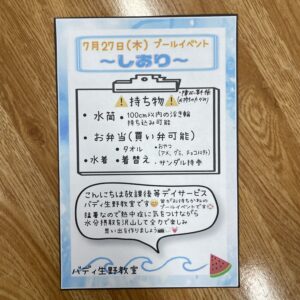 7月27日(木) プールイベント
～しおり～
⚠持ち物⚠
・水筒 ・100cm以内の浮き輪
持ち込み可能
・お弁当(買い弁可能)
・タオル ・おやつ
(アメ、グミ、チョコ以外)
・水着 ・着替え ・サンダル持参
こんにちは放課後等デイサービス
バディ生野教室です 皆がお待ちかねの
プールイベントです
猛暑なので熱中症に気をつけながら
水分摂取を沢山して全力で楽しみ
思い出を作りましょう
バディ生野教室